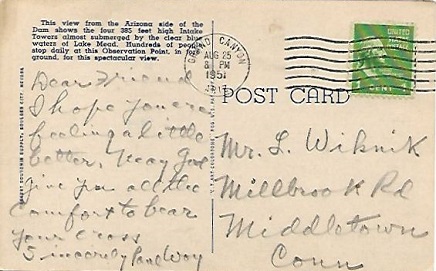 This view from the Arizona side of the
Dam shows the four 385 feet high Intake
Towers almost submerged by the clear blue
waters of Lake Mead. Hundreds of people
stop daily at this Observation Point, in
ground, for this spectacular view.
GRAND CANYON
AUG 25
8 PM
1951
ARIZ.
UNITED
POSTAGE
CENT
POST CARD
Dear Friend
I hope youre
feeling a little
better, May God
give you all the
comfort to bear
your cross
Sincerely
Mr. L. Wiknik
Millbrook Rd
Middletown
Conn